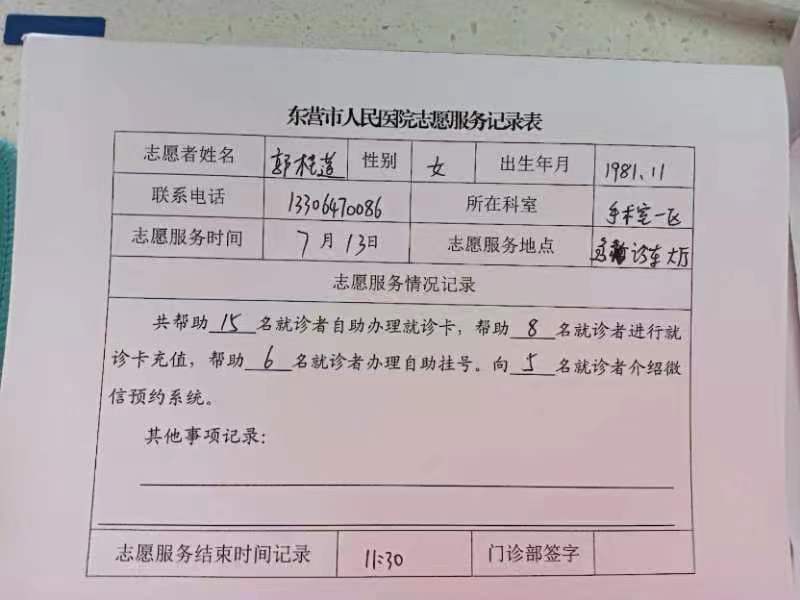 东营市人民医院志愿服务记录表
志愿者姓名 郭桂莲 性别 女 出生年月 1981.11
联系电话 13306470086 所在科室 手术室一区
志愿服务时间 7月13日 志愿服务地点 诊东大厅
志愿服务情况记录
共帮助15名就诊者自助办理就诊卡，帮助8名就诊者进行就
诊卡充值，帮助6名就诊者办理自助挂号。向5名就诊者介绍微
信预约系统。
其他事项记录：
志愿服务结束时间记录 11:30 门诊部签字